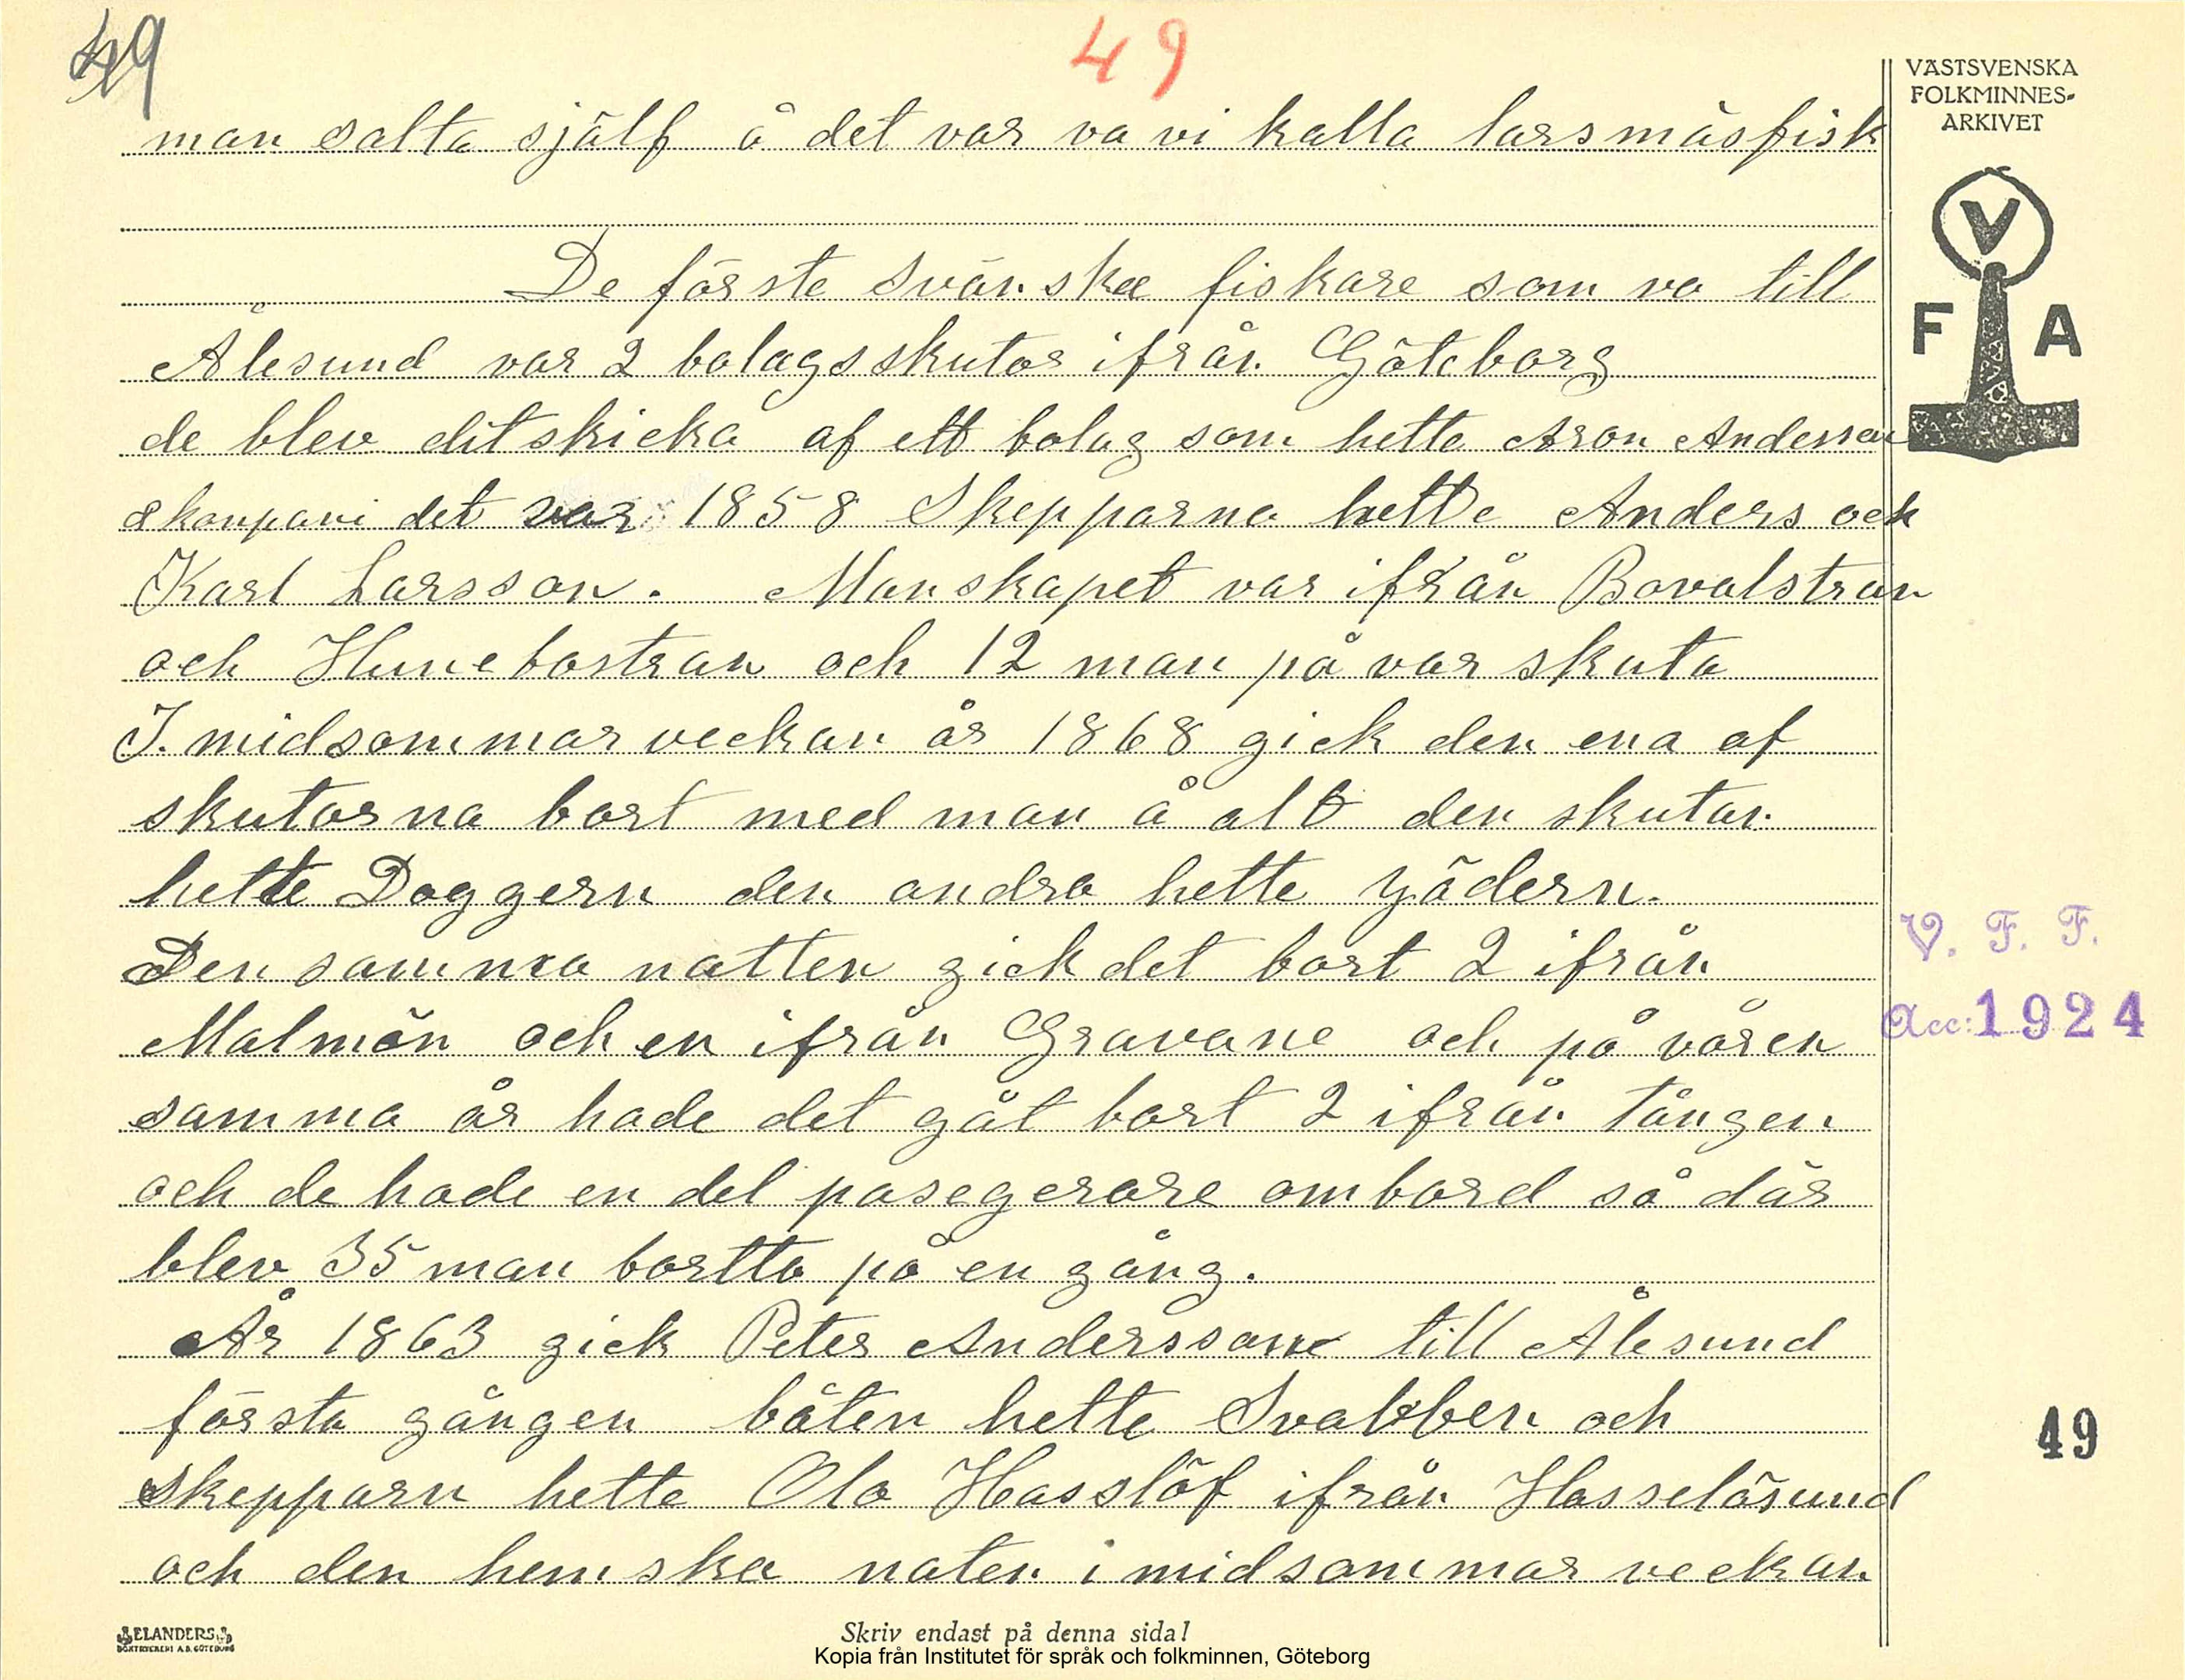 49
49
VÄSTSVENSKA
FOLKMINNES-
ARKIVET
man salta själf å det var va vi kalla larsmäsfisk
V
F A
De förste svänska fiskare som va till
Ålesund var 2 bolagsskutor ifrån Göteborg
de blev ditskicka af ett bolag som hette Aron Andersson
& konpani det var 1858 Skepparna hette Anders och
Karl Larsson. Manskapet var ifrån Bovalstran
och Hunebostran och 12 man på var skuta
I. midsommarveckan år 1868 gick den ena af
skutorna bort med man å alt den skutan
hette Doggern den andra hette Jädern.
Den samma natten gick det bort 2 ifrån
V. F. F.
Malmön och en ifrån Gravane och på våren
Acc: 1924
samma år hade det gåt bort 2 ifrån tången
och de hade en del pasegerare ombord så där
blev 35 man bortta på en gång.
År 1863 gick Peter Andersson till Ålesund
första gången båten hette Svabben och
49
skepparn hette Ola Hasslöf ifrån Hasselösund
och den hemska naten i midsommar veckan
ELANDERS
BOKTRYCKERI A.B. GÖTEBORG
Skriv endast på denna sida!
Kopia från Institutet för språk och folkminnen, Göteborg